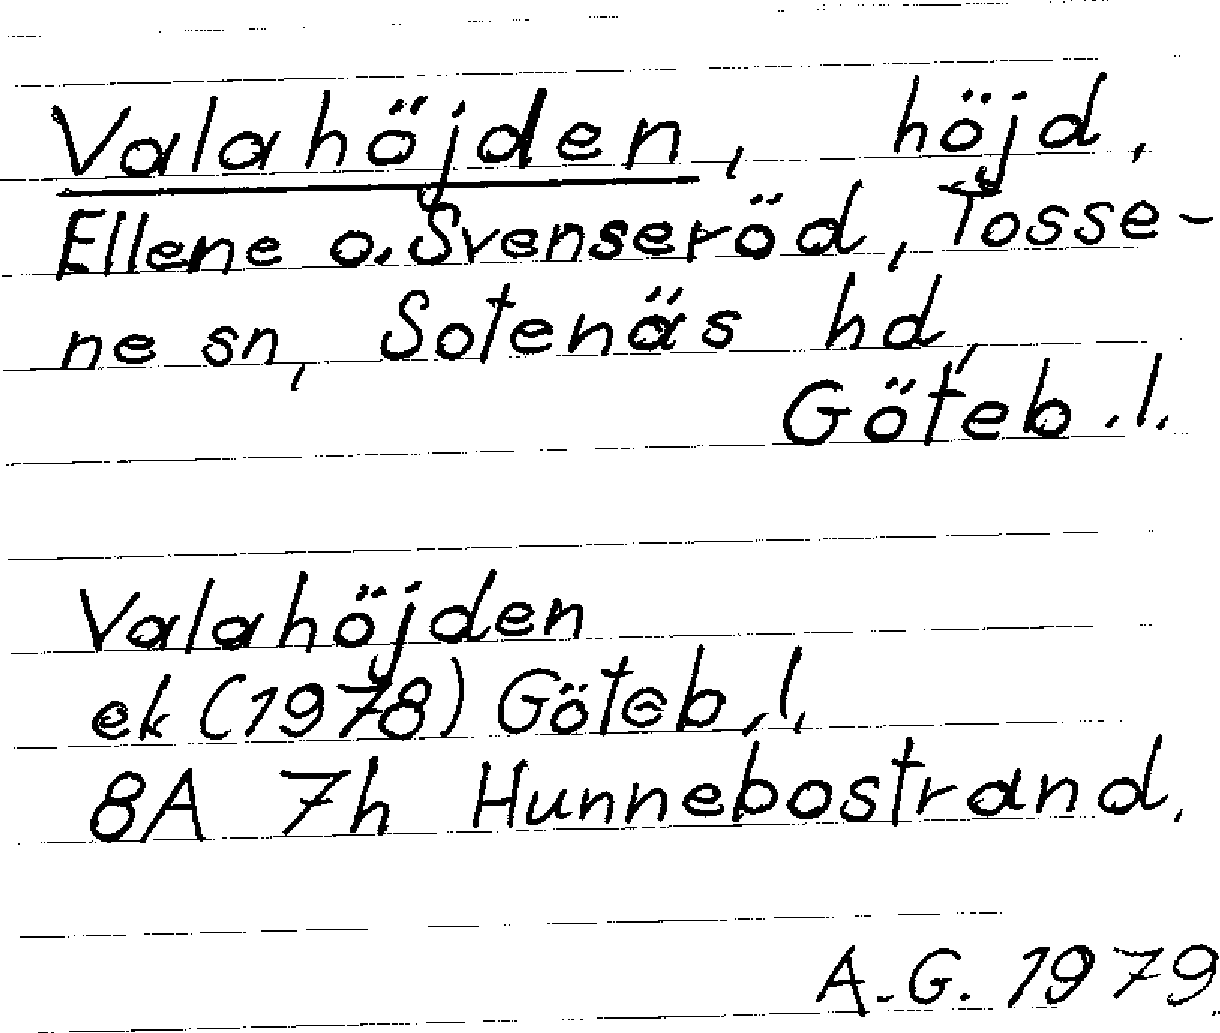 Valahöjden, höjd,
Ellene o. Svenseröd, Tosse-
ne sn, Sotenäs hd,
Göteb.l.
Valahöjden
ek (1978) Göteb.l.
8A 7h Hunnebostrand.
A.G. 1979